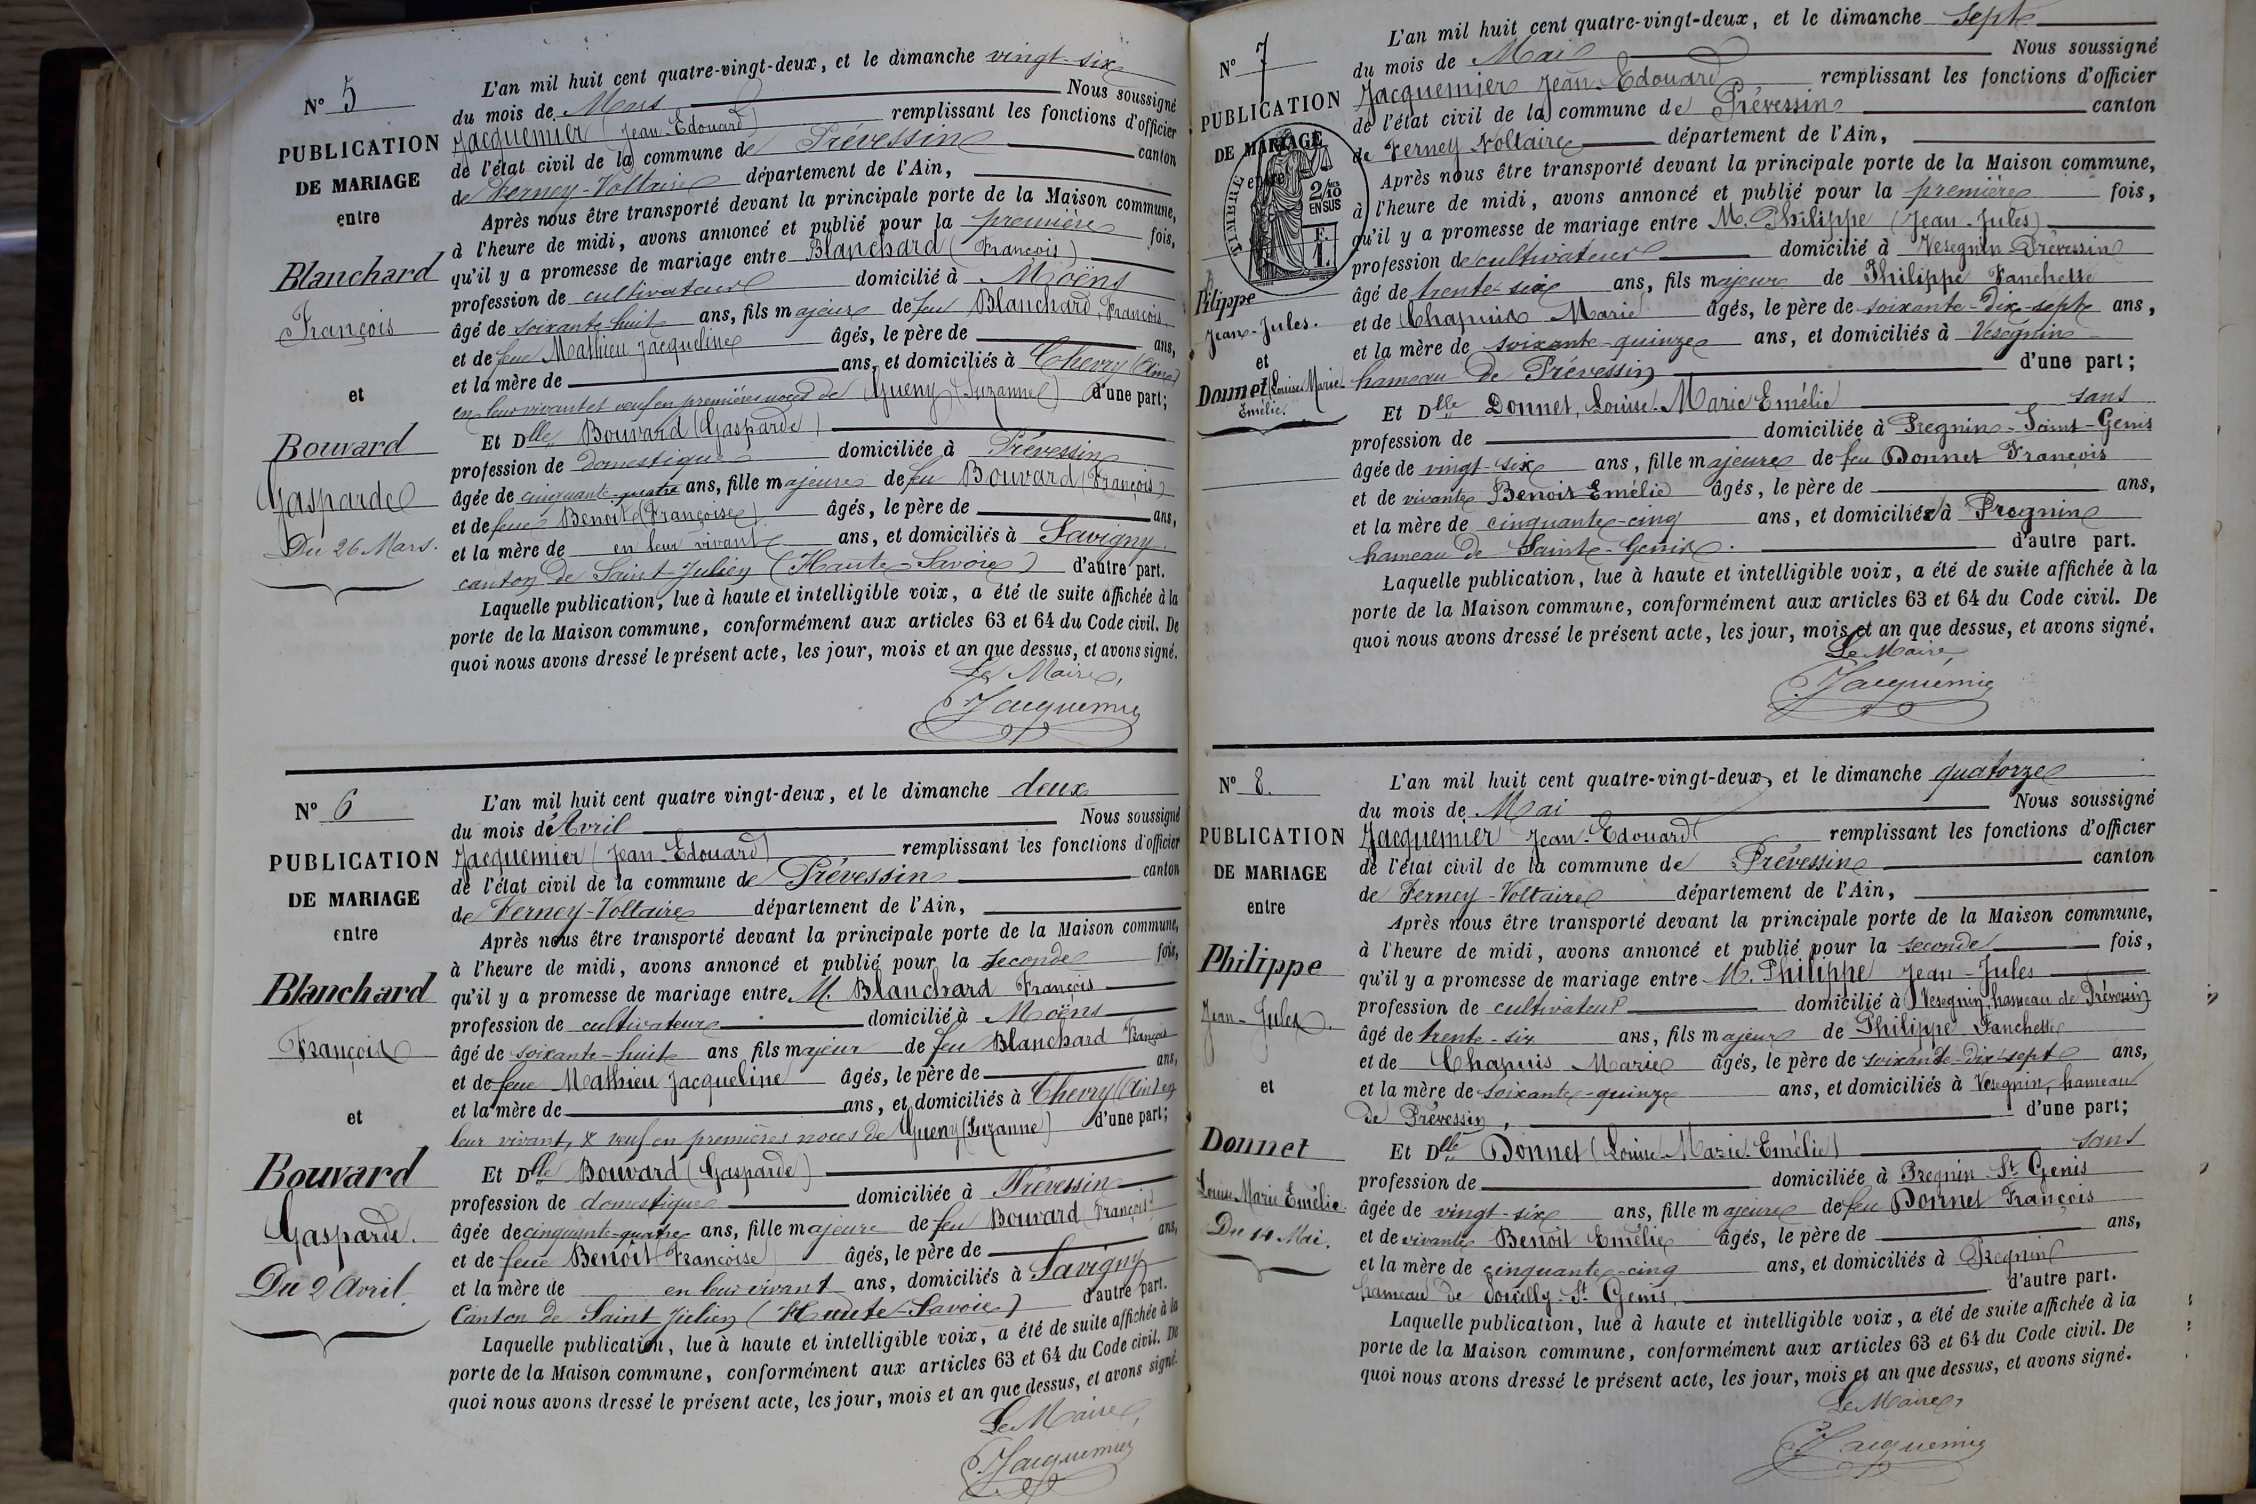 N° 5
PUBLICATION
DE MARIAGE
entre
Blanchard
François
et
Bouvard
Gasparde
Du 26 Mars.
L'an mil huit cent quatre-vingt-deux, et le dimanche vingt-six
du mois de Mars Nous soussigné
Jacquemier (Jean-Edouard) remplissant les fonctions d'officier
de l'état civil de la commune de Prévessin canton
de Ferney-Voltaire département de l'Ain,
Après nous être transporté devant la principale porte de la Maison commune,
à l'heure de midi, avons annoncé et publié pour la première fois,
qu'il y a promesse de mariage entre Blanchard (François)
profession de cultivateur domicilié à Moëns
âgé de soixante-huit ans, fils majeur de feu Blanchard, François
et de feue Mathieu Jacqueline âgés, le père de ans,
et la mère de ans, et domiciliés à Chevry (Ain)
en leur vivant et veuf en premières noces de Gueny (Suzanne) d'une part;
Et Dlle Bouvard (Gasparde)
profession de domestique domiciliée à Prévessin
âgée de cinquante-quatre ans, fille majeure de feu Bouvard (François)
et de feue Benoit (Françoise) âgés, le père de ans,
et la mère de en leur vivant ans, et domiciliés à Savigny
canton de Saint-Julien (Haute-Savoie) d'autre part.
Laquelle publication, lue à haute et intelligible voix, a été de suite affichée à la
porte de la Maison commune, conformément aux articles 63 et 64 du Code civil. De
quoi nous avons dressé le présent acte, les jour, mois et an que dessus, et avons signé.
Le Maire,
Jacquemier
N° 6
PUBLICATION
DE MARIAGE
entre
Blanchard
François
et
Bouvard
Gasparde.
Du 2 Avril.
L'an mil huit cent quatre vingt-deux, et le dimanche deux
du mois de Avril Nous soussigné
Jacquemier (Jean-Edouard) remplissant les fonctions d'officier
de l'état civil de la commune de Prévessin canton
de Ferney-Voltaire département de l'Ain,
Après nous être transporté devant la principale porte de la Maison commune,
à l'heure de midi, avons annoncé et publié pour la seconde fois,
qu'il y a promesse de mariage entre M. Blanchard François
profession de cultivateur domicilié à Moëns
âgé de soixante-huit ans, fils majeur de feu Blanchard François
et de feue Mathieu Jacqueline âgés, le père de ans,
et la mère de ans, et domiciliés à Chevry (Ain) en
leur vivant, & veuf en premières noces de Gueny (Suzanne) d'une part;
Et Dlle Bouvard (Gasparde)
profession de domestique domiciliée à Prévessin
âgée de cinquante-quatre ans, fille majeure de feu Bouvard (François)
et de feue Benoit (Françoise) âgés, le père de ans,
et la mère de en leur vivant ans, domiciliés à Savigny
Canton de Saint Julien (Haute-Savoie) d'autre part.
Laquelle publication, lue à haute et intelligible voix, a été de suite affichée à la
porte de la Maison commune, conformément aux articles 63 et 64 du Code civil. De
quoi nous avons dressé le présent acte, les jour, mois et an que dessus, et avons signé.
Le Maire,
Jacquemier
N° 7
PUBLICATION
DE MARIAGE
entre
TIMBRE
2/10
EN SUS
Pilippe
Jean-Jules.
et
Donnet Louise Marie
Emélie.
L'an mil huit cent quatre-vingt-deux, et le dimanche sept
du mois de Mai Nous soussigné
Jacquemier Jean-Edouard remplissant les fonctions d'officier
de l'état civil de la commune de Prévessin canton
de Ferney Voltaire département de l'Ain,
Après nous être transporté devant la principale porte de la Maison commune,
à l'heure de midi, avons annoncé et publié pour la première fois,
qu'il y a promesse de mariage entre M. Philippe (Jean-Jules)
profession de cultivateur domicilié à Vesegnin Prévessin
âgé de trente-six ans, fils majeur de Philippe Fanchette
et de Chapuis Marie âgés, le père de soixante-dix-sept ans,
et la mère de soixante-quinze ans, et domiciliés à Vesegnin
hameau de Prévessin d'une part;
Et Dlle Donnet, Louise Marie Emélie sans
profession de domiciliée à Pregnin-Saint-Genis
âgée de vingt-six ans, fille majeure de feu Donnet François
et de vivante Benoit Emélie âgés, le père de ans,
et la mère de cinquante-cinq ans, et domiciliés à Pregnin
hameau de Sainte-Genix. d'autre part.
Laquelle publication, lue à haute et intelligible voix, a été de suite affichée à la
porte de la Maison commune, conformément aux articles 63 et 64 du Code civil. De
quoi nous avons dressé le présent acte, les jour, mois et an que dessus, et avons signé.
Le Maire,
Jacquemier
N° 8.
PUBLICATION
DE MARIAGE
entre
Philippe
Jean-Jules.
et
Donnet
Louise Marie Emélie.
Du 14 Mai.
L'an mil huit cent quatre-vingt-deux, et le dimanche quatorze
du mois de Mai Nous soussigné
Jacquemier Jean-Edouard remplissant les fonctions d'officier
de l'état civil de la commune de Prévessin canton
de Ferney-Voltaire département de l'Ain,
Après nous être transporté devant la principale porte de la Maison commune,
à l'heure de midi, avons annoncé et publié pour la seconde fois,
qu'il y a promesse de mariage entre M. Philippe Jean-Jules
profession de cultivateur domicilié à Vesegnin, hameau de Prévessin
âgé de trente-six ans, fils majeur de Philippe Fanchette
et de Chapuis Marie âgés, le père de soixante-dix-sept ans,
et la mère de soixante-quinze ans, et domiciliés à Vesegnin, hameau
de Prévessin, d'une part;
Et Dlle Donnet (Louise Marie Emélie) sans
profession de domiciliée à Pregnin-St Genis
âgée de vingt-six ans, fille majeure de feu Donnet François
et de vivante Benoit Emélie âgés, le père de ans,
et la mère de cinquante-cinq ans, et domiciliés à Pregnin
hameau de Pouilly-St Genis, d'autre part.
Laquelle publication, lue à haute et intelligible voix, a été de suite affichée à la
porte de la Maison commune, conformément aux articles 63 et 64 du Code civil. De
quoi nous avons dressé le présent acte, les jour, mois et an que dessus, et avons signé.
Le Maire,
Jacquemier